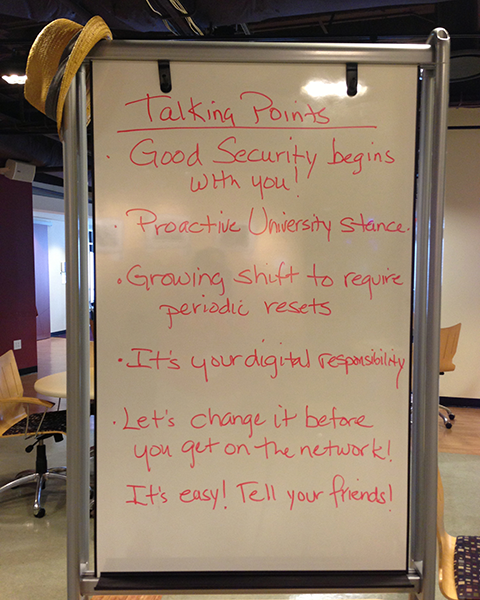 Talking Points
· Good Security begins
with you!
· Proactive University stance.
· Growing shift to require
periodic resets
· It's your digital responsibility
· Let's change it before
you get on the network!
It's easy! Tell your friends!